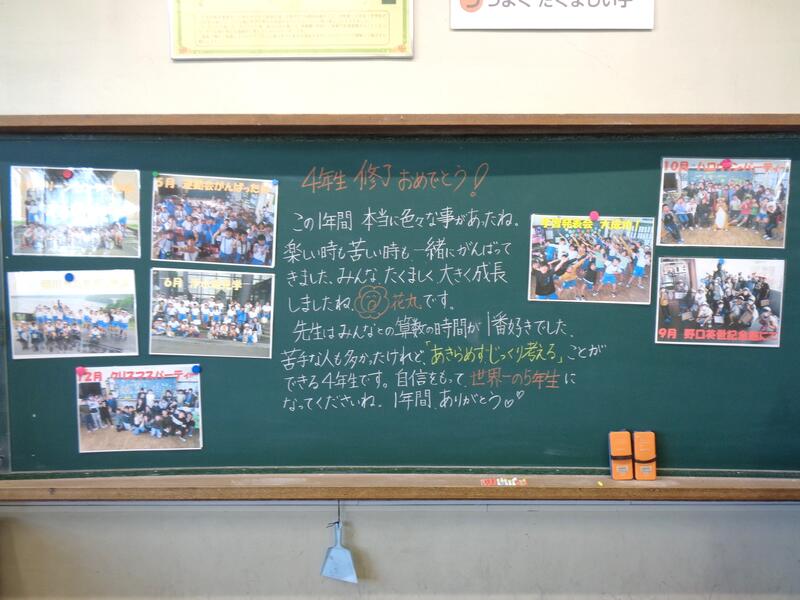 つよく たくましい子
4年生 修了 おめでとう!
この1年間 本当に色々な事があったね。
楽しい時も苦しい時も一緒にがんばって
きました、みんな たくましく 大きく成長
しましたね。花丸です。
先生はみんなとの算数の時間が 1番好きでした、
苦手な人も多かったけれど、「あきらめず、じっくり考える」ことが
できる4年生です。自信をもって、世界一の5年生に
なってくださいね。1年間、ありがとう♡♡
5月 運動会がんばった
6月
12月 クリスマスパーティー
学習発表会 大成功!
10月 ハロウィンパーティー
9月 野口英世記念館にて